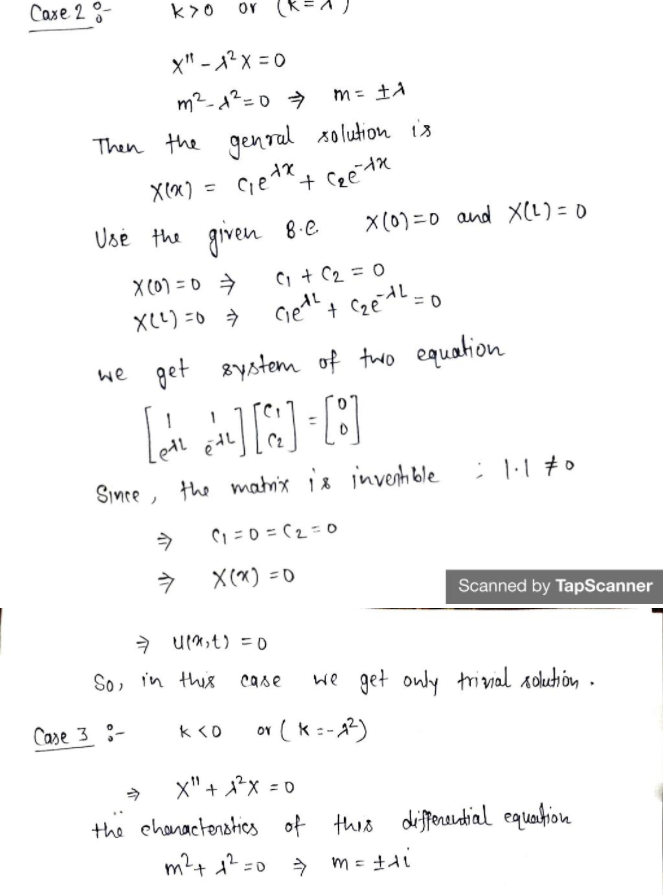 Case 2 :- k>0 or (k = λ )
X" - λ²X = 0
m² - λ² = 0 ⇒ m = ±λ
Then the genral solution is
X(x) = C₁e^{λx} + C₂e^{-λx}
Use the given B.C. X(0)=0 and X(L)=0
X(0)=0 ⇒ C₁ + C₂ = 0
X(L)=0 ⇒ C₁e^{λL} + C₂e^{-λL} = 0
we get system of two equation
[1 1; e^{λL} e^{-λL}] [C₁; C₂] = [0; 0]
Since, the matrix is invertible ∵ |·| ≠ 0
⇒ C₁ = 0 = C₂ = 0
⇒ X(x) = 0
Scanned by TapScanner
⇒ U(x,t) = 0
So, in this case we get only trivial solution.
Case 3 :- k<0 or (k = -λ²)
⇒ X" + λ²X = 0
the characteristics of this differential equation
m² + λ² = 0 ⇒ m = ±λi